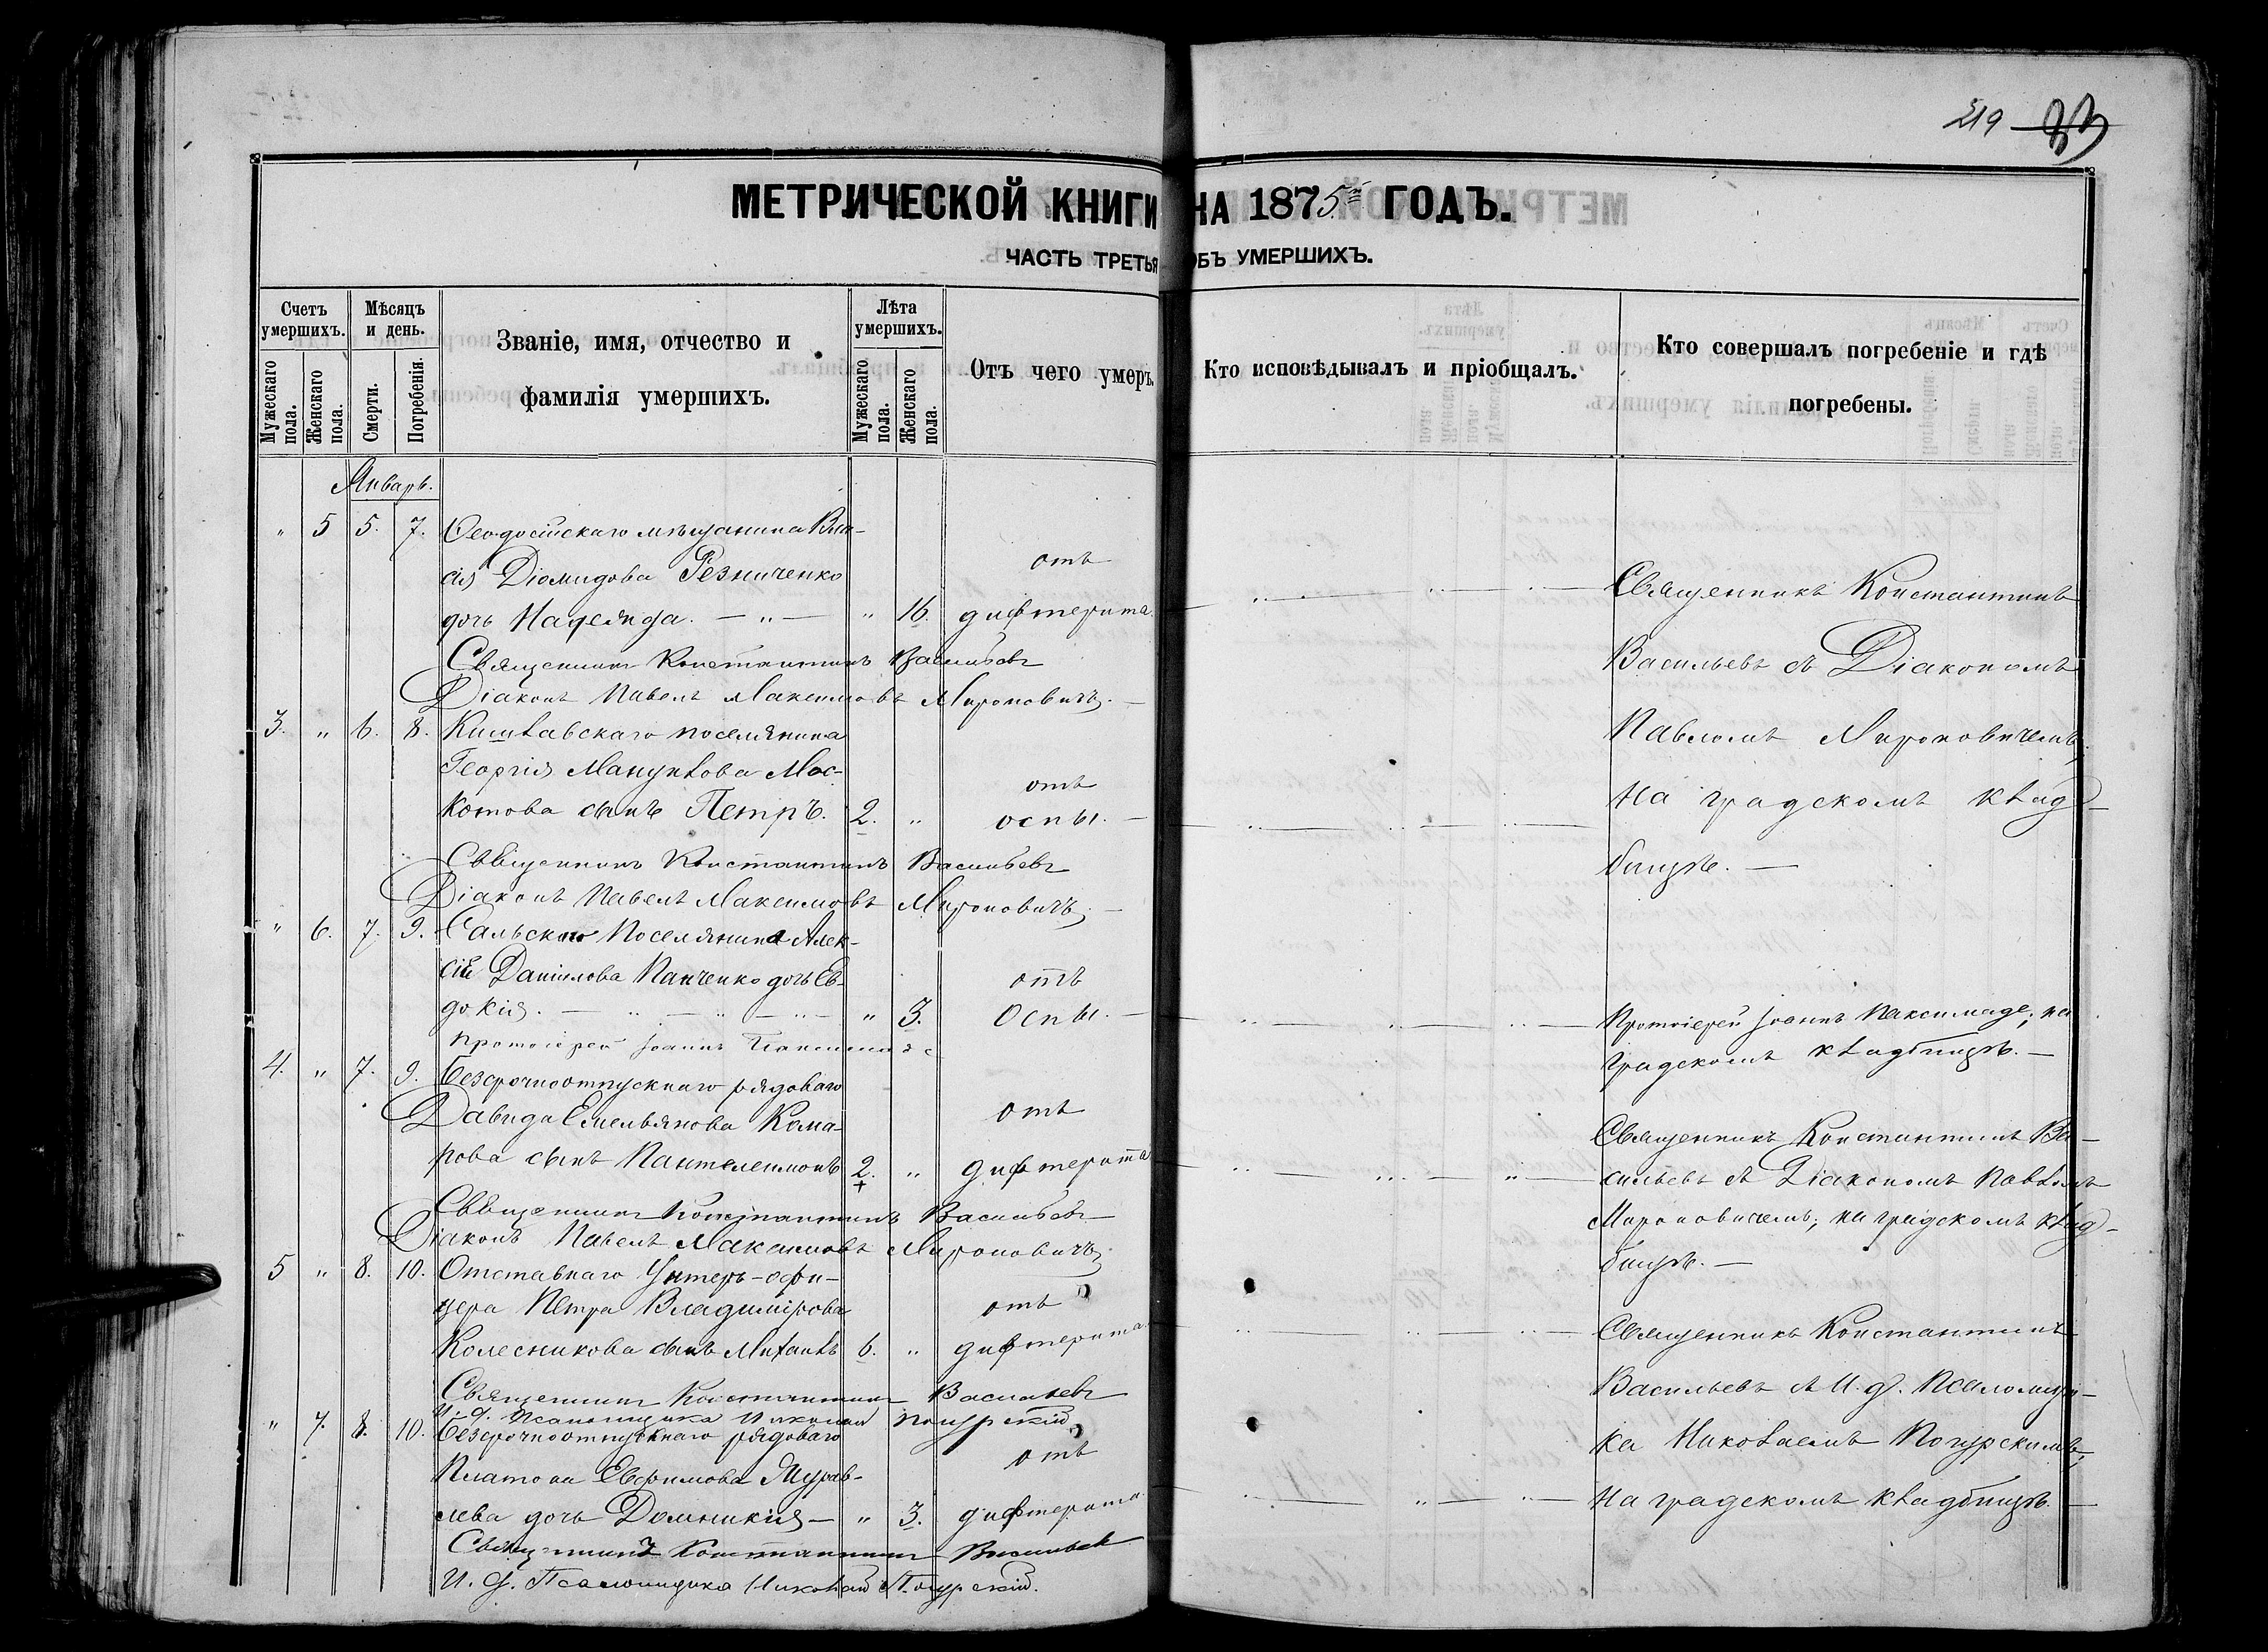 219
МЕТРИЧЕСКОЙ КНИГИ НА 1875й ГОДЪ.
ЧАСТЬ ТРЕТЬЯ ОБЪ УМЕРШИХЪ.
Счетъ умершихъ.
Мужескаго пола.
Женскаго пола.
Мѣсяцъ и день.
Смерти.
Погребенія.
Званіе, имя, отчество и
фамилія умершихъ.
Лѣта умершихъ.
Мужескаго пола.
Женскаго пола.
Отъ чего умеръ.
Кто исповѣдывалъ и пріобщалъ.
Кто совершалъ погребеніе и гдѣ
погребены.
Январь.
" 5 5. 7. Ѳеодосійскаго мѣщанина Вла-
сія Діомидова Резниченко
отъ
дочь Надежда. — " — " 16. дифтерита.
Священникъ Константинъ Васильевъ
Діаконъ Павелъ Максимовъ Мироновичъ. —
3. " 6. 8. Кишлавскаго поселянина
Георгія Манулова Мос-
отъ
котова сынъ Петръ. 2. " оспы. —
Священникъ Константинъ Васильевъ
Діаконъ Павелъ Максимовъ Мироновичъ. —
" 6. 7. 9. Сальского Поселянина Алек-
сія Даніилова Панченко дочь Ев-
отъ
докія. — " — " — " 3. Оспы. —
Протоіерей Іоаннъ Паксимаде
4. " 7. 9. Безсрочноотпускнаго рядоваго
Давида Емельянова Кома-
отъ
рова сынъ Пантелеимонъ 2. " дифтерита
Священникъ Константинъ Васильевъ
Діаконъ Павелъ Максимовъ Мироновичъ.
5 " 8. 10. Отставнаго Унтеръ-офи-
цера Петра Владимірова
отъ
Колесникова сынъ Михаилъ 6. " дифтерита.
Священникъ Константинъ Васильевъ
И. д. Псаломщика Николай Погурскій
" 7. 8. 10. Безсрочноотпускнаго рядоваго
Платона Евфимова Журав-
отъ
лева дочь Домникія — " 3. дифтерита.
Священникъ Константинъ Васильевъ
И. д. Псаломщика Николай Погурскій.
Священникъ Константинъ
Васильевъ съ Діакономъ
Павломъ Мироновичемъ,
на градскомъ клад-
бищѣ. —
Протоіерей Іоаннъ Паксимаде; на
градскомъ кладбищѣ. —
Священникъ Константинъ Ва-
сильевъ съ Діакономъ Павломъ
Мироновичемъ; на градскомъ клад-
бищѣ. —
Священникъ Константинъ
Васильевъ съ И. д. Псаломщи-
ка Николаемъ Погурскимъ,
на градскомъ кладбищѣ. —